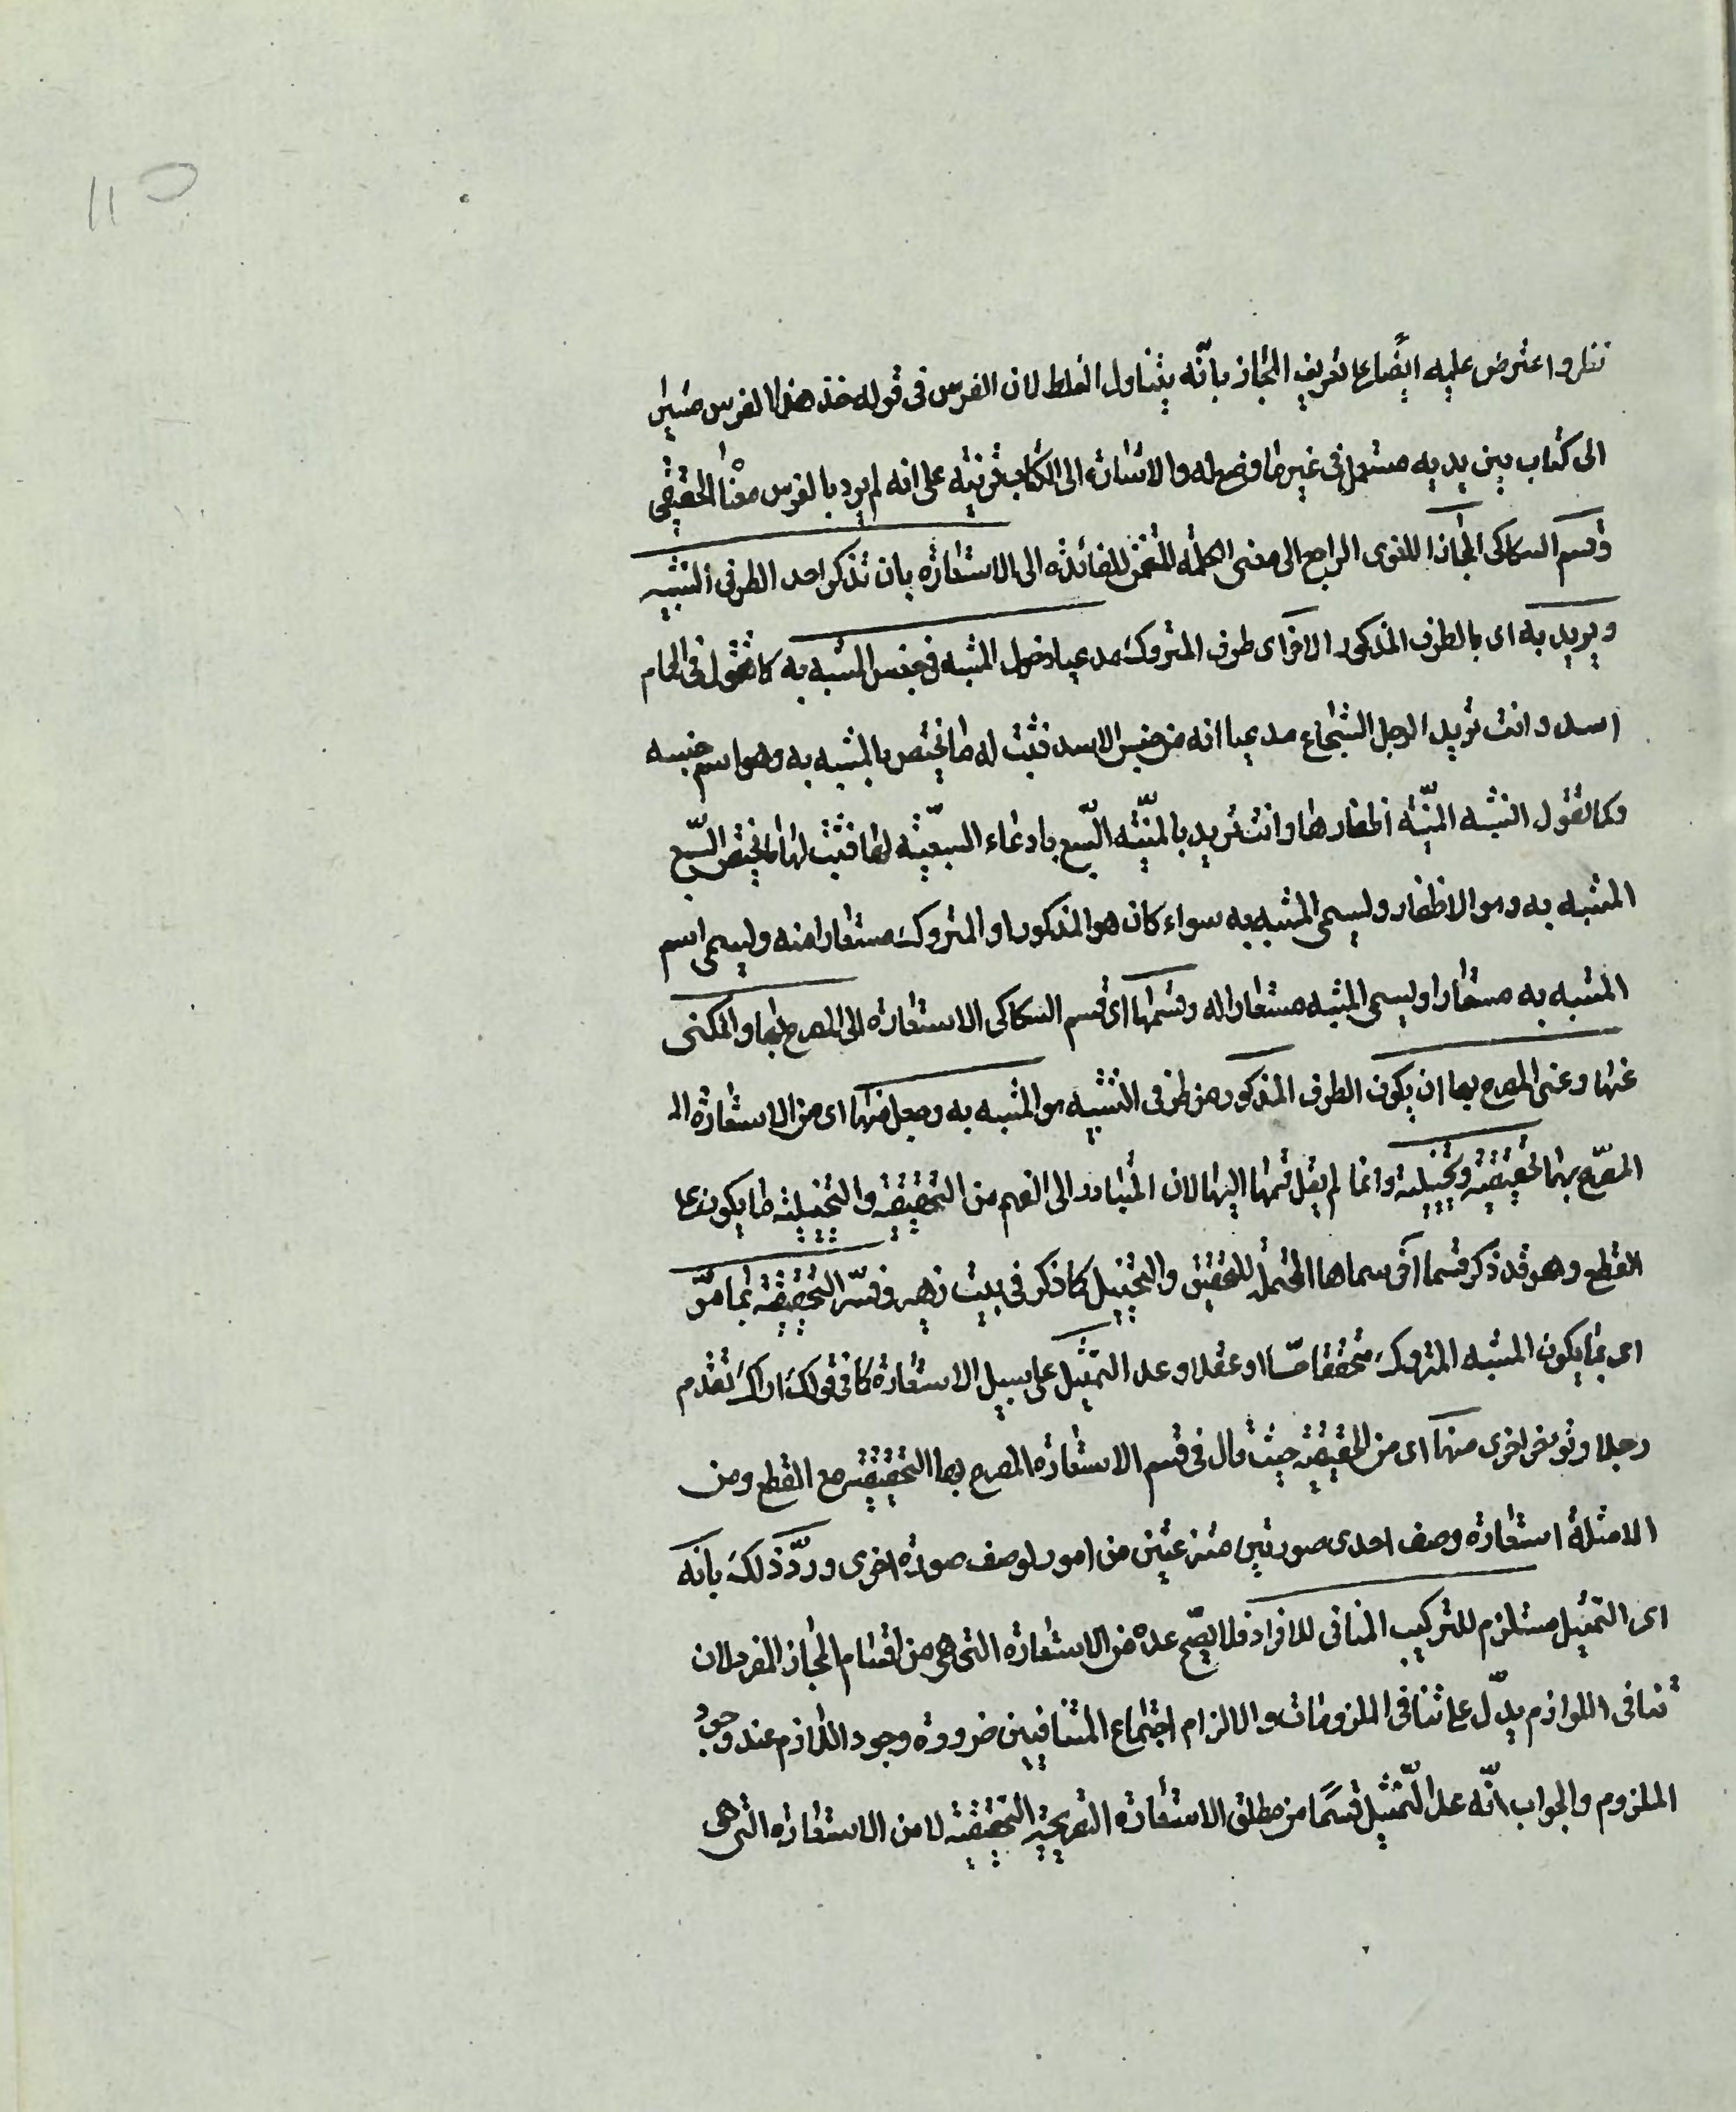 نظر واعترض عليه ايضا على تعريف المجاز بانّه يتناول الغلط لان الفرس فى قوله خذ هذا الفرس مشيرا
الى كتاب بين يديه مستعمل فى غير ما وضع له والاشارة الى الكتاب قرينة على انه لم يرد بالفرس معناه الحقيقى
وقسم السكاكى المجاز اللغوى الراجع الى معنى الكلمة المتضمن للفائدة الى الاستعارة بان تذكر احد الطرفى التشبيه
ويريد به اى بالطرف المذكور الآخر اى طرف المتروك مدعيا دخول المشبه فى جنس المشبه به كما تقول فى الحمام
اسد وانت تريد الرجل الشجاع مدعيا انه من جنس الاسد فثبت له ما يختص بالمشبه به وهو اسم جنسه
وكما تقول انشبه المنيّة اظفارها وانت تريد بالمنيّة السّبع بادعاء السبعيّة لها فثبت لها ما يختص السّبع
المشبه به وهو الاظفار ويسمى المشبه به سواء كان هو المذكور او المتروك مستعارا منه ويسمى اسم
المشبه به مستعارا ويسمى المشبه مستعارا له وقسمها اى قسم السكاكى الاستعارة الى المصرح بها والمكنى
عنها وعنى المصرح بها ان يكون الطرف المذكور من طرفى التشبيه هو المشبه به وجعل منها اى من الاستعارة الم
المصرّح بها تحقيقية وتخييلية وانما لم يقل قسمها اليها لان المتبادر الى الفهم من التحقيقية والتخييلية ما يكون على
القطع وهو قد ذكر قسما آخر سماها المحتمل للتحقيق والتخييل كما ذكر فى بيت زهير وفسّر التحقيقية بما مرّ
اى بما يكون المشبه المتروك متحققا حسّا او عقلا وعد التمثيل على سبيل الاستعارة كما فى قولك اراك تقدم
رجلا وتؤخر اخرى منها اى من التحقيقية حيث قال فى قسم الاستعارة المصرح بها التحقيقية مع القطع ومن
الامثلة استعارة وصف احدى صورتين منتزعتين من امور لوصف صورة اخرى وردّ ذلك بانّه
اى التمثيل مستلزم للتركيب المنافى للافراد فلا يصّح عده من الاستعارة التى هى من اقسام المجاز المفرد لان
تنافى اللوازم يدلّ على تنافى الملزومات والا لزم اجتماع المتنافيين ضرورة وجود اللازم عند وجود
الملزوم والجواب انّه عد التّمثيل قسمًا من مطلق الاستعارة التصريحية التحقيقية لا من الاستعارة التى هى